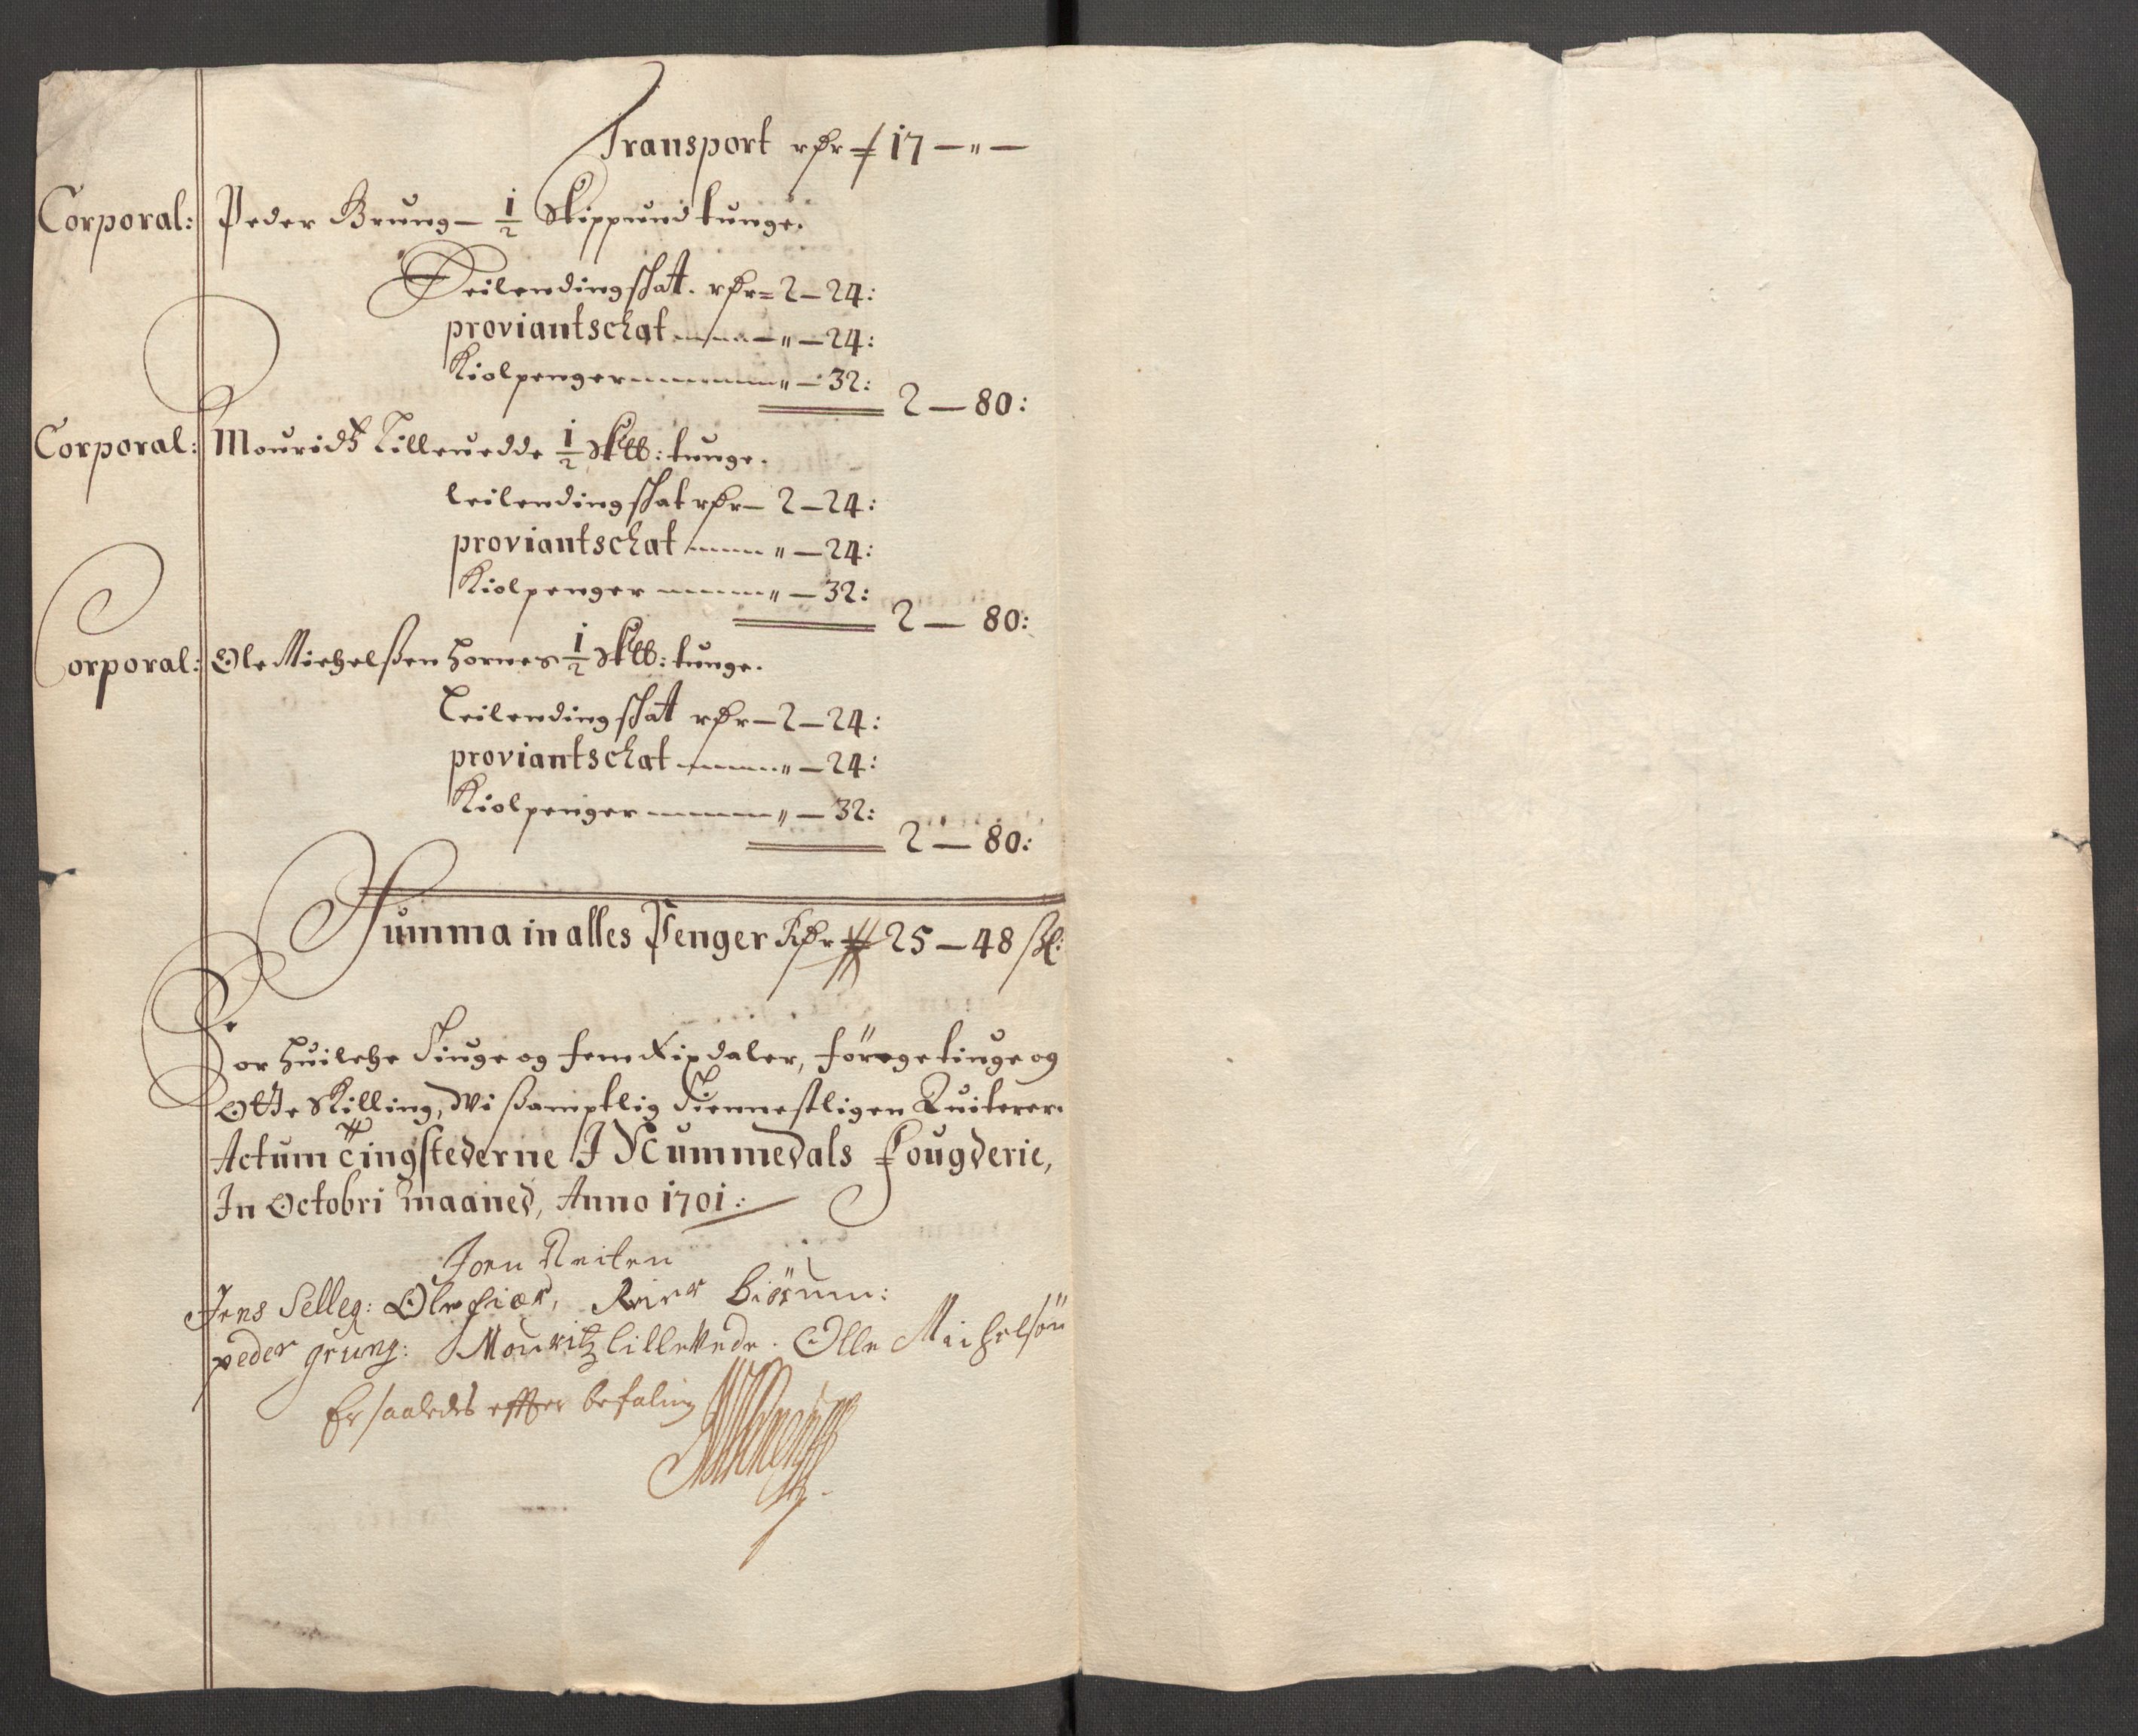 Transport rdr 17 — " —
Corporal: Peder Brung — 1/2 Skippund tunge.
Leilendingschat. rdr = 2 — 24:
proviantschat — " — 24:
Kiolpenger " — 32:
2 — 80:
Corporal: Mouridtz Lilleuedde 1/2 Sk℔: tunge.
leilendingschat rdr — 2 — 24:
proviantschat " — 24:
Kiolpenger " — 32:
2 — 80:
Corporal: Ole Michelßen Hornes 1/2 Sk℔: tunge.
Leilendingschat rdr — 2 — 24:
proviantschat " — 24:
Kiolpenger " — 32:
2 — 80:
Summa in alles Penger Rdr 25 — 48 ß:
For huilche Tiuge og fem Rixdaler, förgetiuge og
Otte Skilling, Wi ßamptlig Tiennestligen Quiterer.
Actum Tingstederne J Nummedals Fougderie,
In Octobri Maaned, Anno 1701:
Joen Reiten
Jens Selleg: Ole fiær, Reier biörum:
peder grung: Mouritz lilleVede. Olle Michelsön
Er saaledes effter befaling